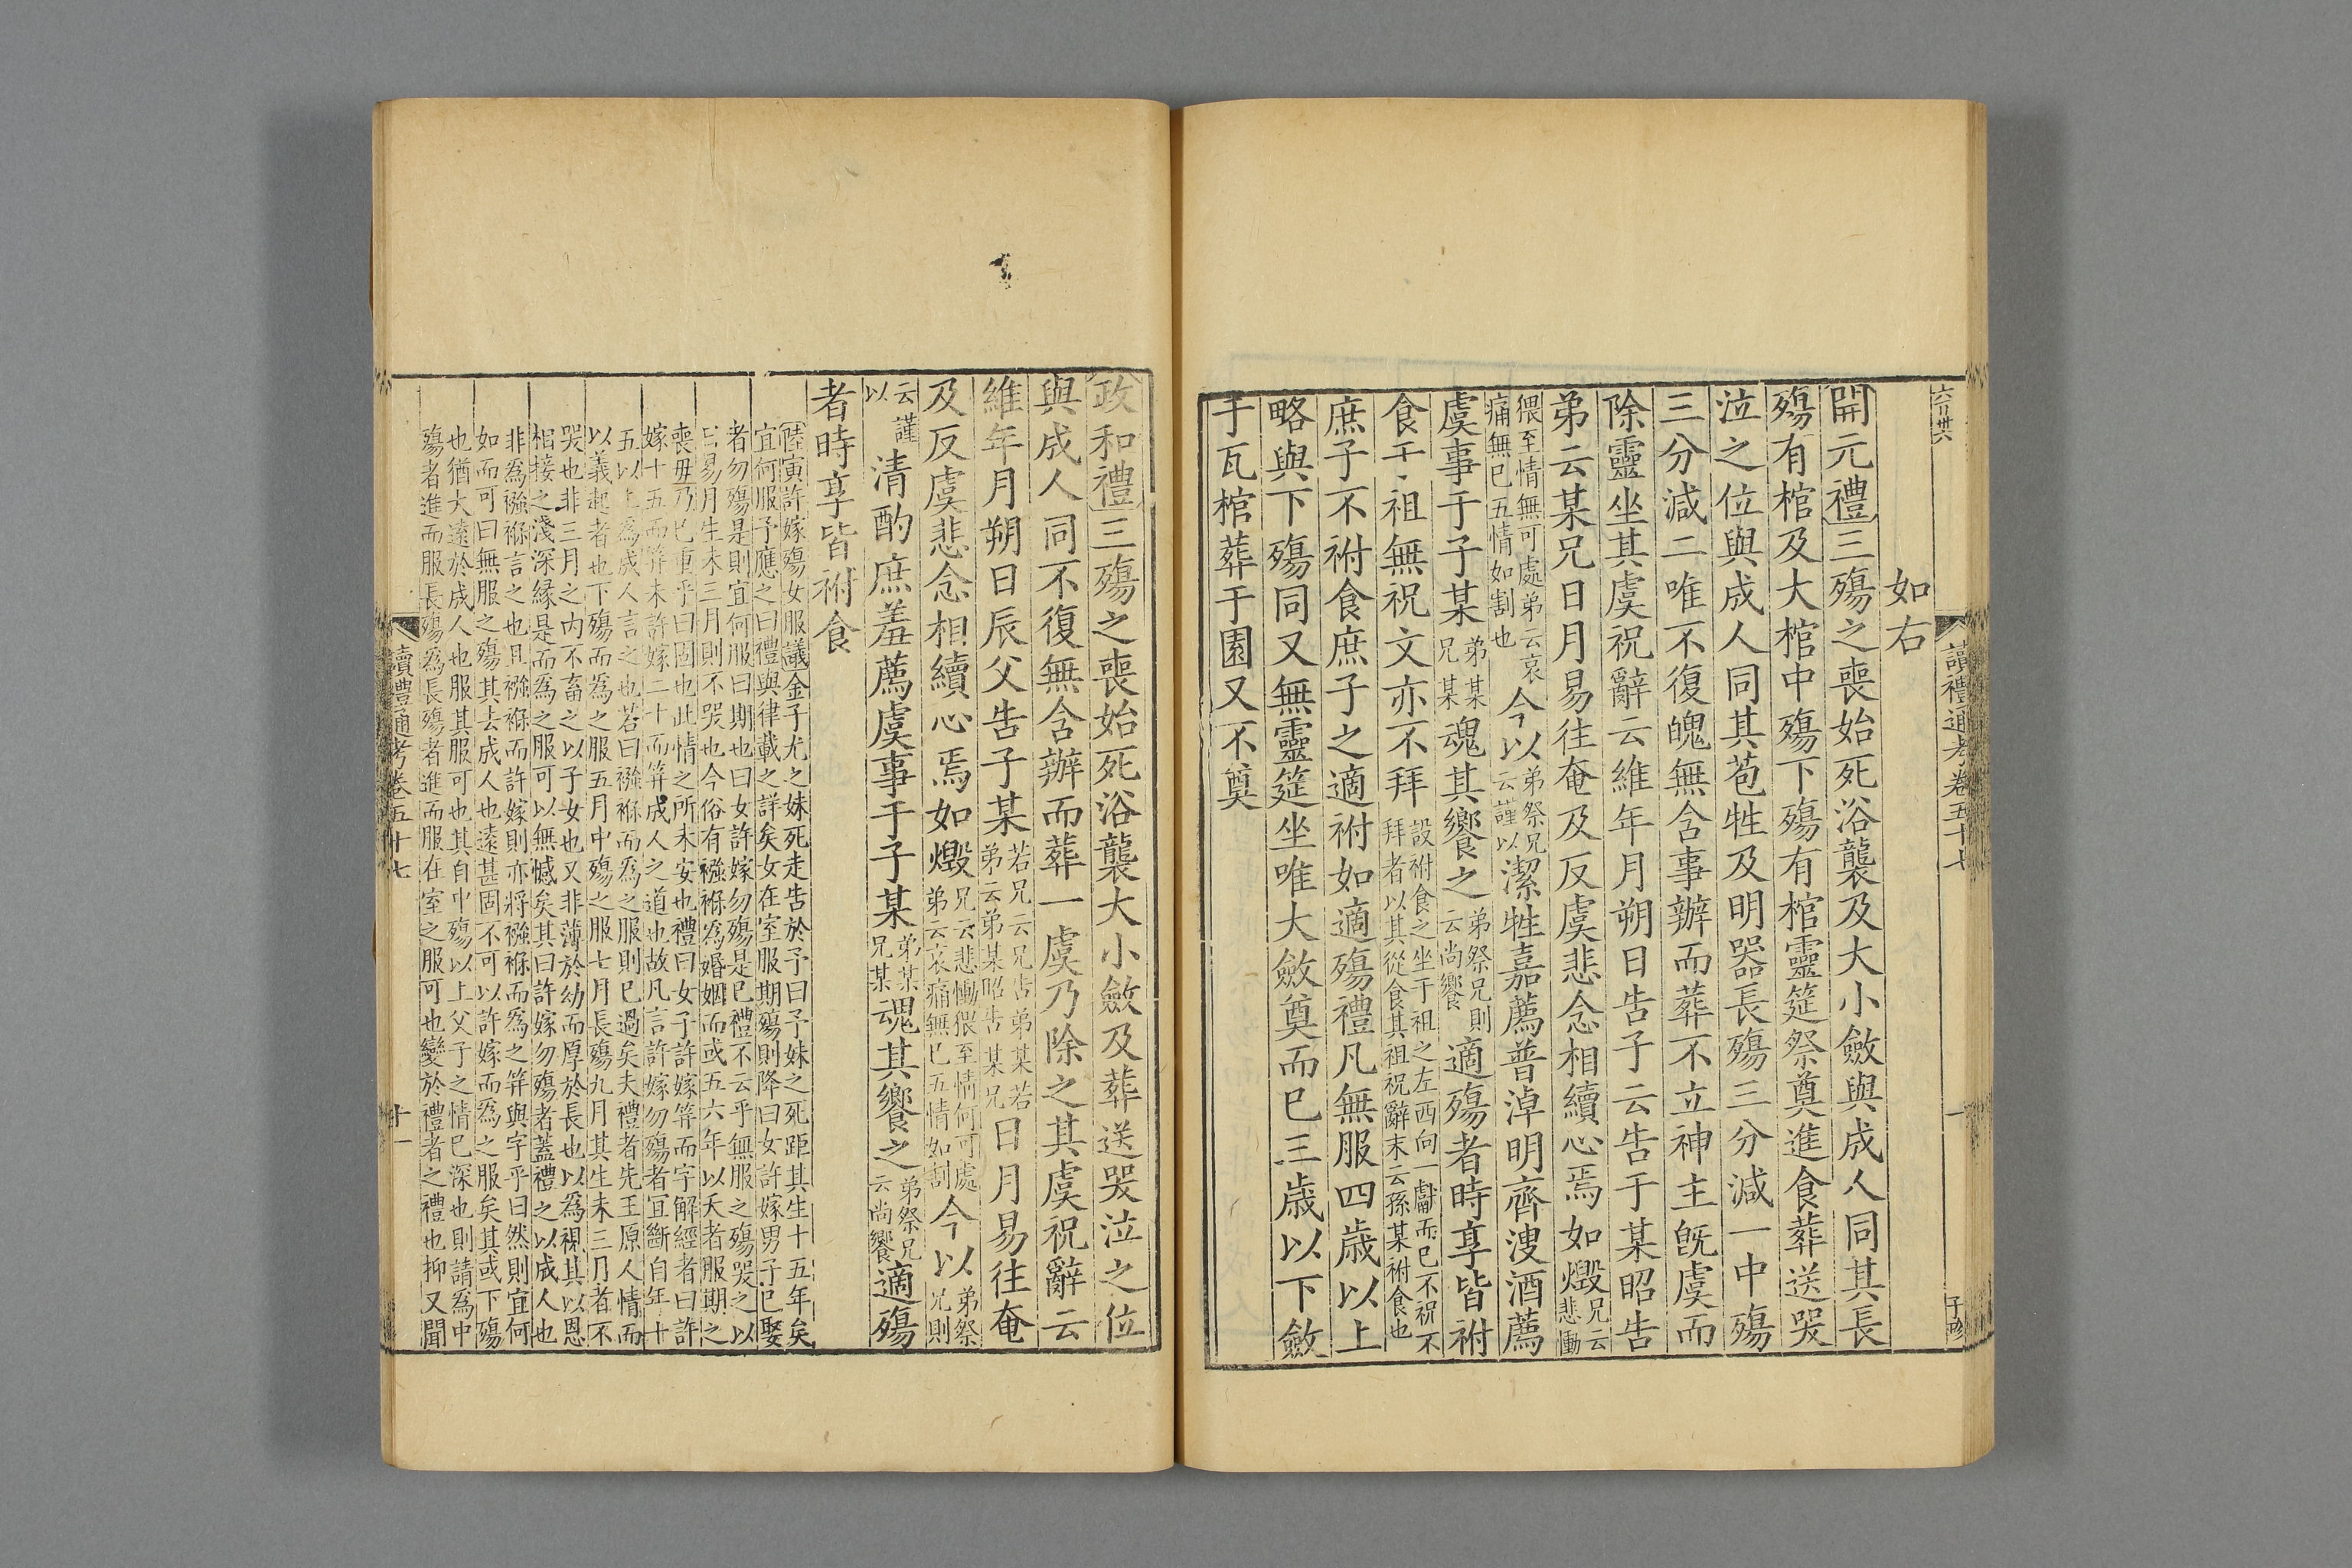 讀禮通考卷五十七
如右
開元禮三殤之喪始死浴襲及大小斂與成人同其長
殤有棺及大棺中殤下殤有棺靈筵祭奠進食葬送哭
泣之位與成人同其苞牲及明器長殤三分減一中殤
三分減二唯不復魄無含事辦而葬不立神主旣虞而
除靈坐其虞祝辭云維年月朔日告子云告于某昭告
弟云某兄日月易往奄及反虞悲念相續心焉如燬兄云悲慟
猥至情無可處弟云哀痛無已五情如割也今以弟祭兄云謹以潔牲嘉薦普淖明齊溲酒薦
虞事于子某弟某兄某魂其饗之弟祭兄則云尚饗適殤者時享皆祔
食于祖無祝文亦不拜設祔食之坐于祖之左西向一獻而已不祝不拜者以其從食其祖祝辭末云孫某祔食也
庶子不祔食庶子之適祔如適殤禮凡無服四歲以上
略與下殤同又無靈筵坐唯大斂奠而已三歲以下斂
于瓦棺葬于園又不奠
政和禮三殤之喪始死浴襲大小斂及葬送哭泣之位
與成人同不復無含辦而葬一虞乃除之其虞祝辭云
維年月朔日辰父告子某若兄云兄告弟某若弟云弟某昭告某兄日月易往奄
及反虞悲念相續心焉如燬兄云悲慟猥至情何可處弟云哀痛無已五情如割今以弟祭兄則
云謹以清酌庶羞薦虞事于子某弟某兄某魂其饗之弟祭兄云尚饗適殤
者時享皆祔食
陸寅許嫁殤女服議金子尤之妹死走告於予曰予妹之死距其生十五年矣
宜何服予應之曰禮與律載之詳矣女在室服期殤則降曰女許嫁男子已娶
者勿殤是則宜何服曰期也曰女許嫁勿殤是已禮不云乎無服之殤哭之以
日易月生未三月則不哭也今俗有襁褓為婚姻而或五六年以夭者服期之
喪毋乃已重乎曰固也此情之所未安也禮曰女子許嫁笄而字解經者曰許
嫁十五而笄未許嫁二十而笄成人之道也故凡言許嫁勿殤者宜斷自年十
五以上為成人言之也若曰襁褓而為之服則已過矣夫禮者先王原人情而
以義起者也下殤而為之服五月中殤之服七月長殤九月其生未三月者不
哭也非三月之內不畜之以子女也又非薄於幼而厚於長也以為視其以恩
相接之淺深緣是而為之服可以無憾矣其曰許嫁勿殤者蓋禮之以成人也
非為襁褓言之也且襁褓而許嫁則亦將襁褓而為之笄與字乎曰然則宜何
如而可曰無服之殤其去成人也遠甚固不可以許嫁而為之服矣其或下殤
也猶大遠於成人也服其服可也其自中殤以上父子之情已深也則請為中
殤者進而服長殤為長殤者進而服在室之服可也變於禮者之禮也抑又聞
讀禮通考卷五十七
十一